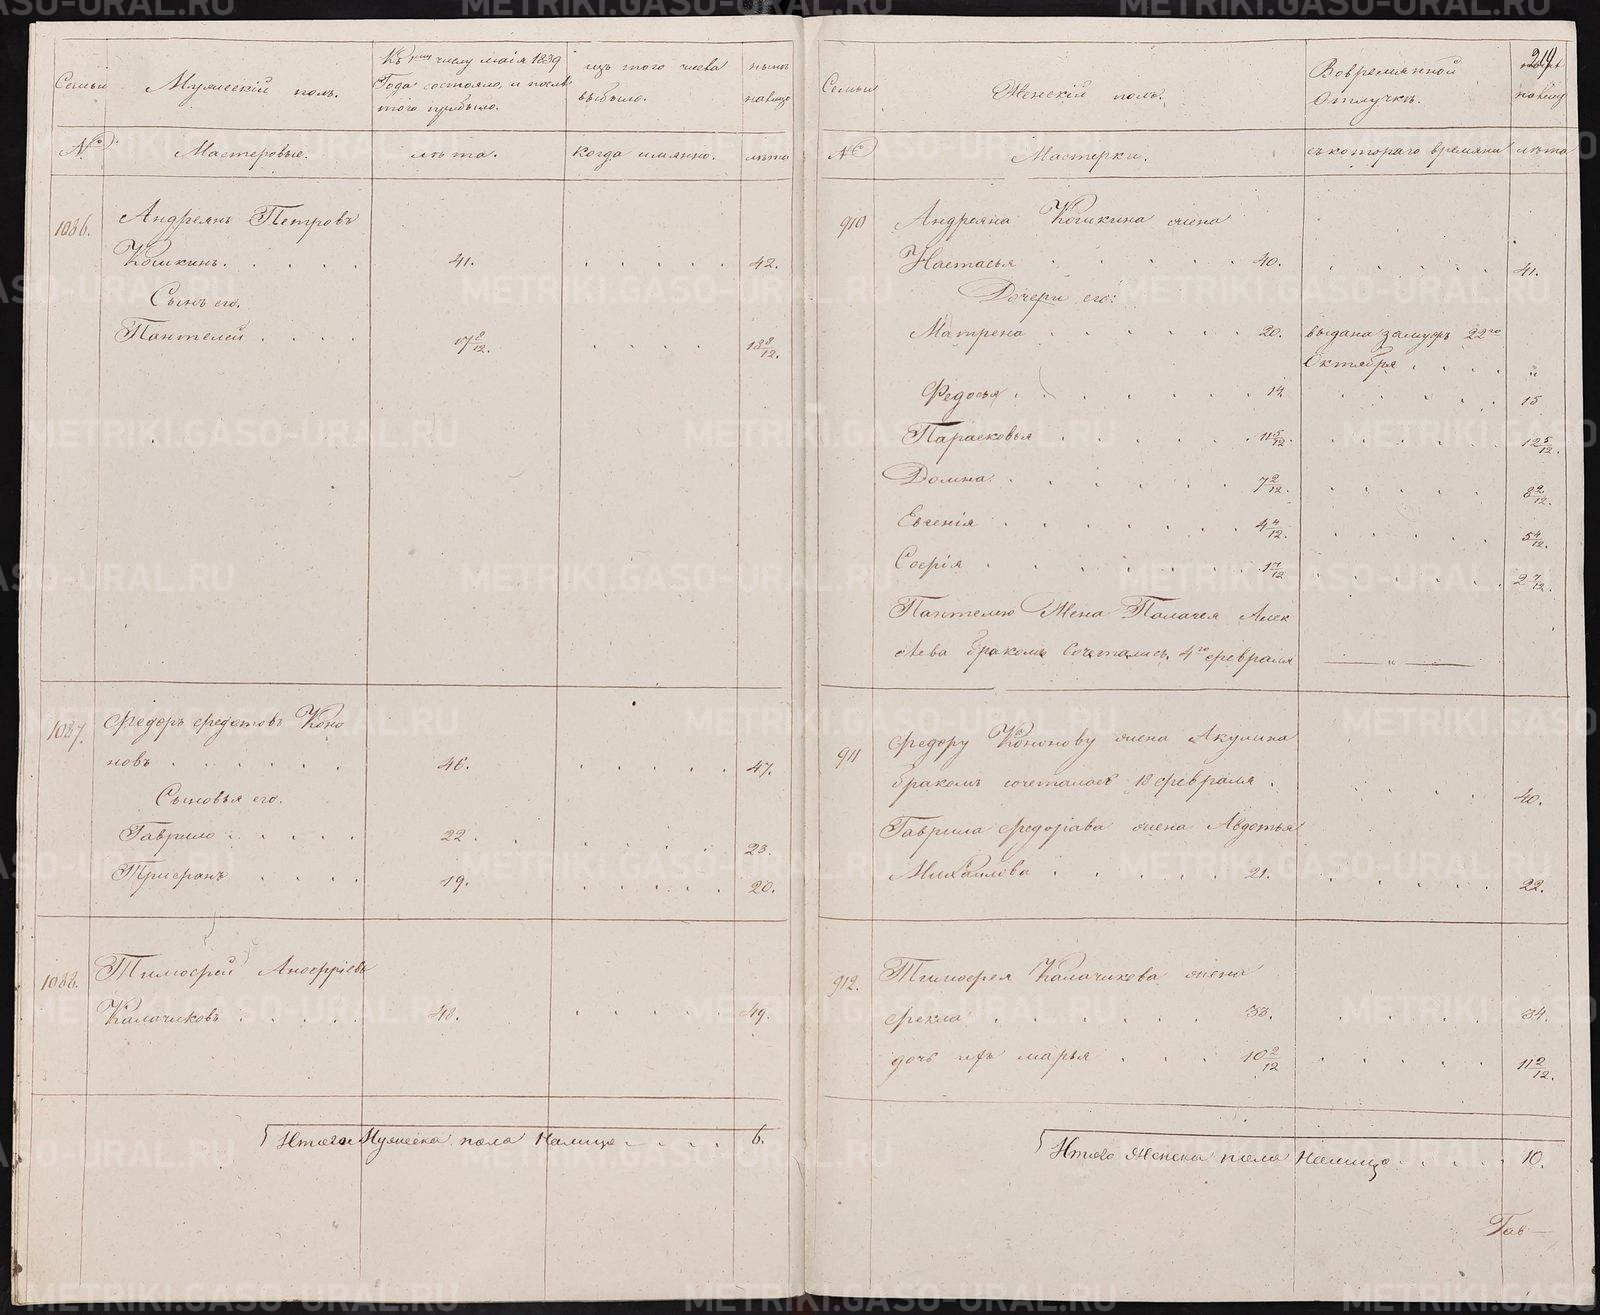 Семьи
Мужескій полъ.
Къ числу маія 1839
Года состояло, и послѣ
того прибыло.
изъ того числа
выбыло.
нынѣ
налицо
№
Мастеровые.
лѣта.
когда имянно.
лѣта
1086.
Андреянъ Петровъ
Кошкинъ. 41. 42.
Сынъ его.
Пантелей 17 8/12. 18 8/12.
1087.
Федоръ Федотовъ Коно
новъ 46. 47.
Сыновья его.
Гаврило 22. 23.
Трифонъ 19. 20.
1088.
Тимофей Анофріевъ
Калачиковъ 48. 49.
Итого Мужеска пола налицо 6.
211
Семьи
Женскій полъ.
Вовремянной
Отлучкѣ.
налицо
№
Мастерки.
съкотораго времяни
лѣта
910
Андреяна Кошкина жена
Настасья 40. 41.
Дочери его:
Матрена 20. выдана замужъ 22го
Октября "
Федосья 14 15
Параековья 11 5/12. 12 5/12.
Домна 7 2/12. 8 2/12.
Евгенія 4 4/12. 5 4/12.
Софія 1 7/12 2 7/12.
Пантелею Жена Палагея Алек
сѣева бракомъ Сочеталисъ 4го февраля "
911
Федору Кононову жена Акулина
бракомъ сочеталась 18 февраля. 40.
Гаврила Федорава жена Авдотья
Михайлова 21. 22.
912.
Тимофея Калачикова жена
Фекла 33. 34.
дочь ихъ марья 10 2/12 11 2/12.
Итого Женска пола Налицо 10.
Гав